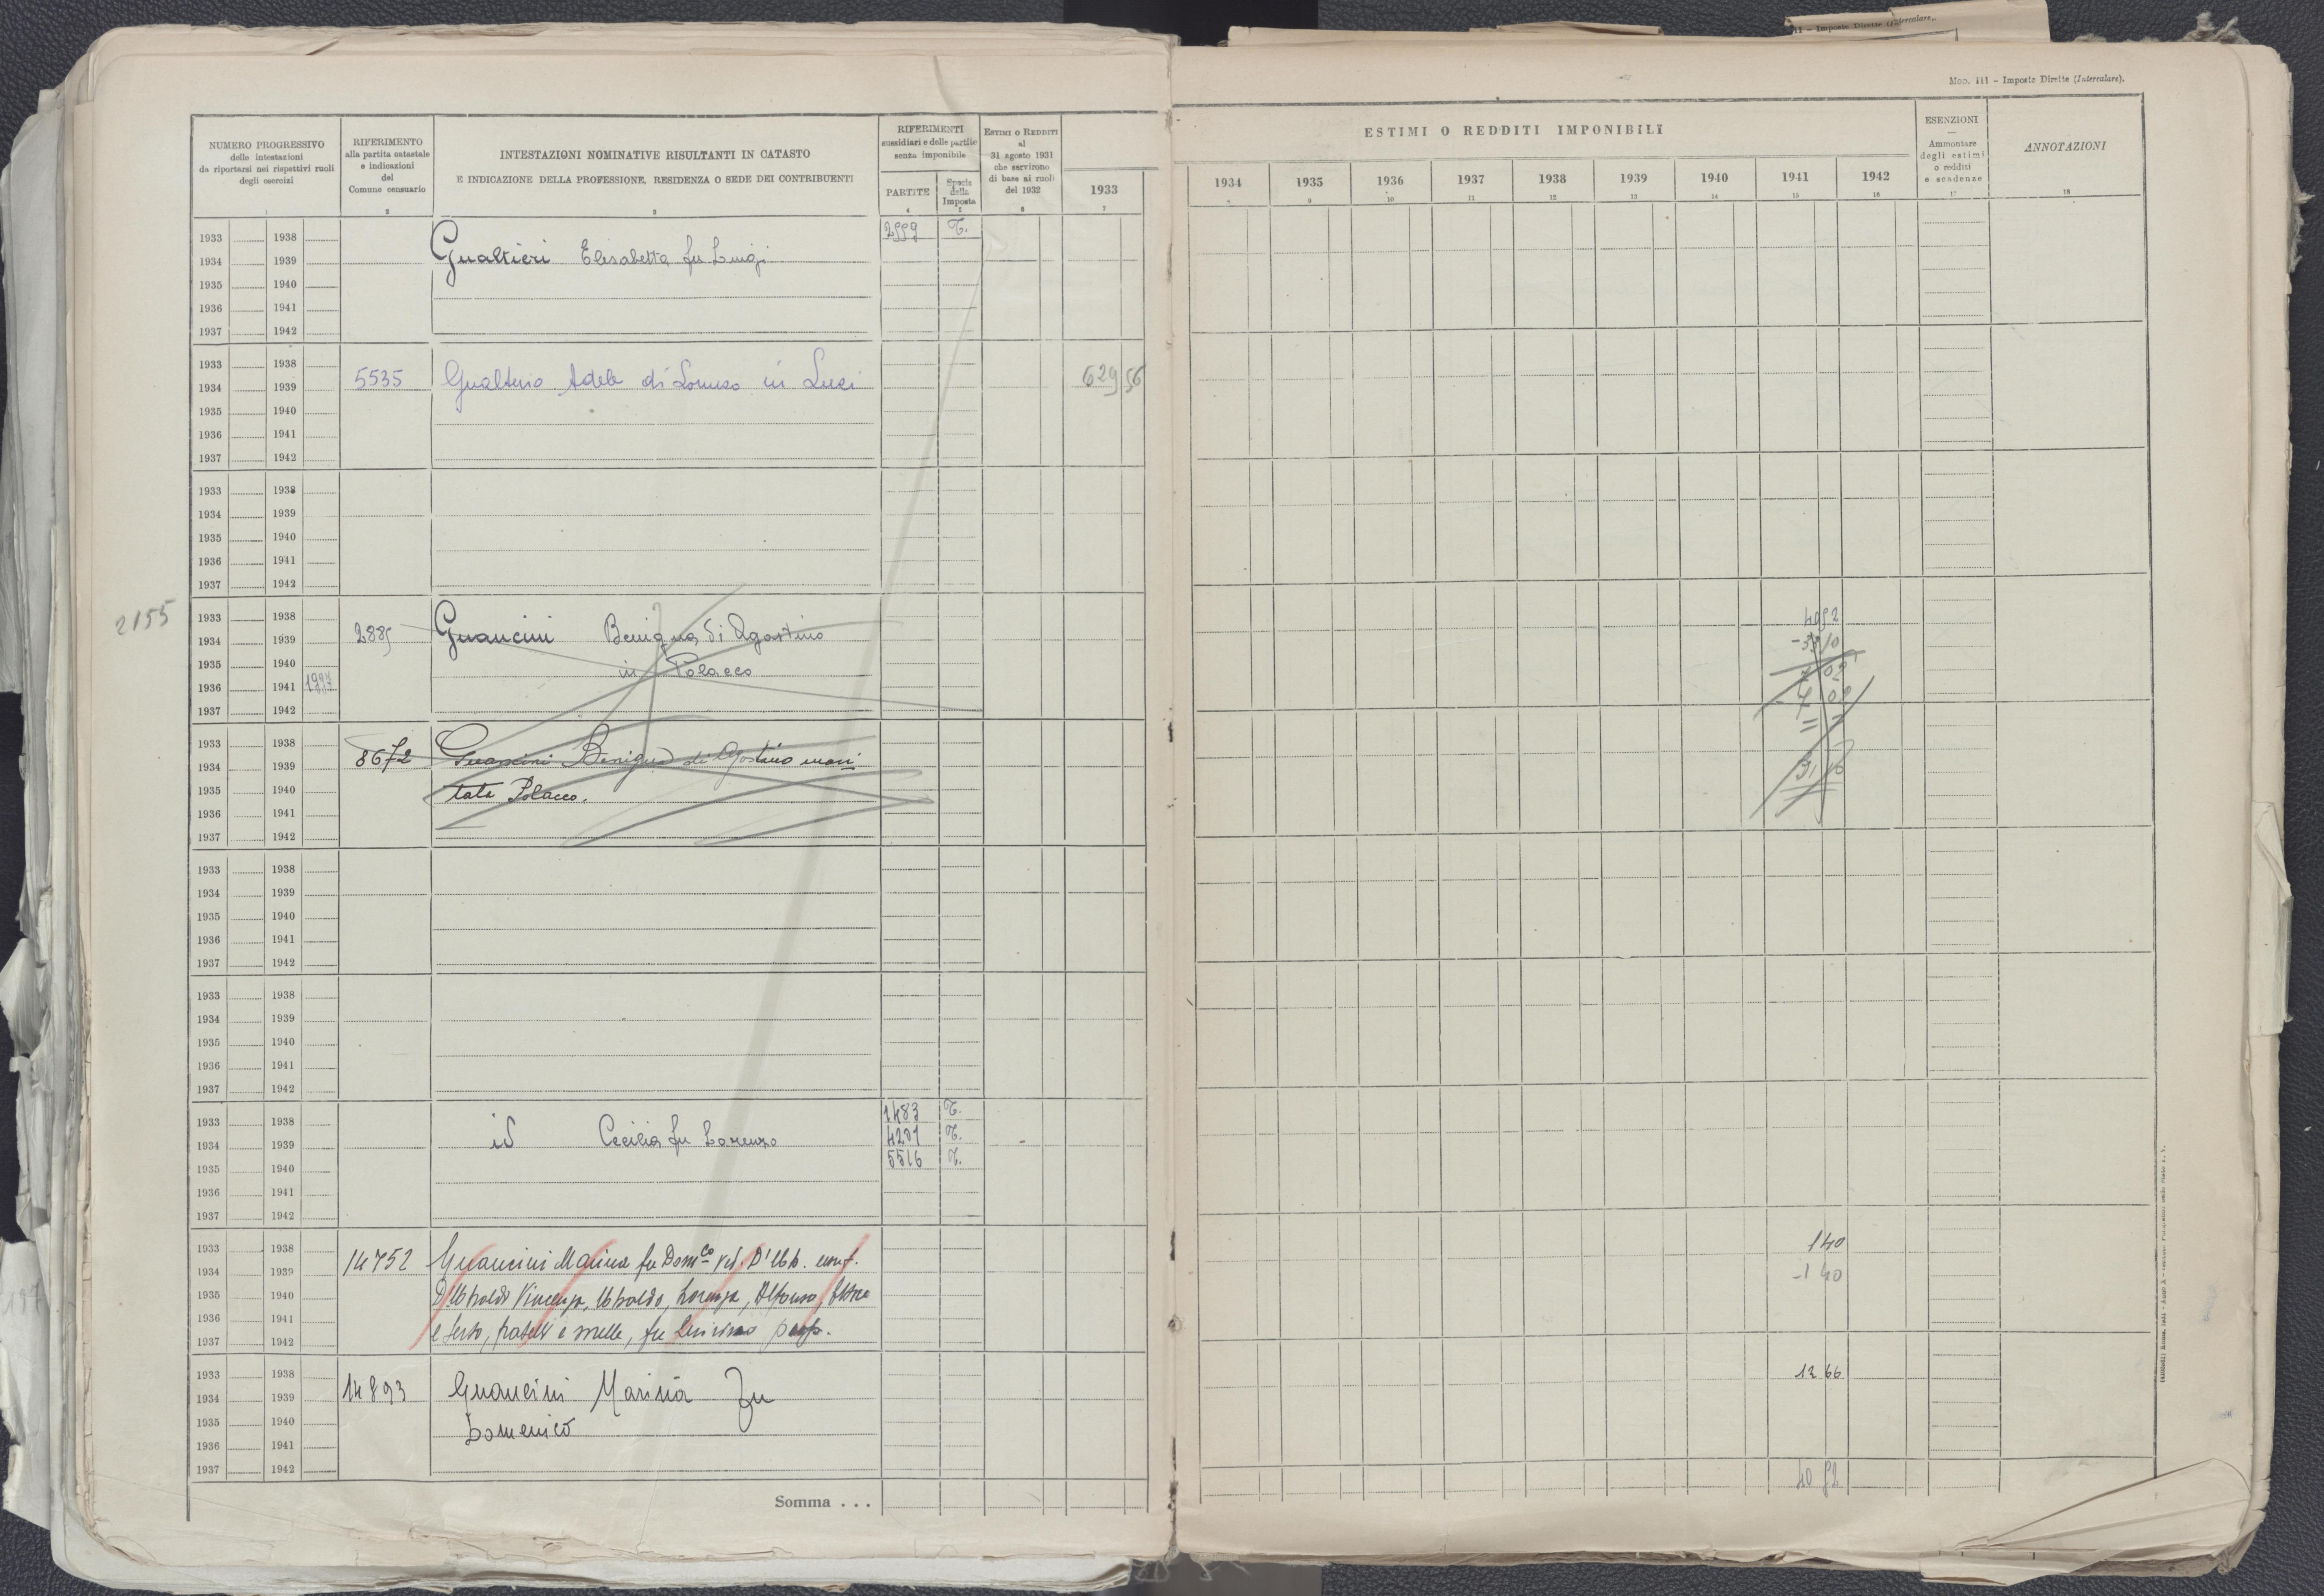 11 - Imposte Dirette (Intercalare)
Mod. 111 - Imposte Dirette (Intercalare).
NUMERO PROGRESSIVO
delle intestazioni
da riportarsi nei rispettivi ruoli
degli esercizi
1
RIFERIMENTO
alla partita catastale
e indicazioni
del
Comune censuario
2
INTESTAZIONI NOMINATIVE RISULTANTI IN CATASTO
E INDICAZIONE DELLA PROFESSIONE, RESIDENZA O SEDE DEI CONTRIBUENTI
3
RIFERIMENTI
sussidiari e delle partite
senza imponibile
PARTITE
4
Specie
della
Imposta
5
ESTIMI O REDDITI
al
31 agosto 1931
che servirono
di base ai ruoli
del 1932
6
1933
7
ESTIMI O REDDITI IMPONIBILI
1934 1935 1936 1937 1938 1939 1940 1941 1942
8 9 10 11 12 13 14 15 16
ESENZIONI
—
Ammontare
degli estimi
o redditi
e scadenze
17
ANNOTAZIONI
18
1933 1938 T.
1934 1939 Gualtieri Elisabetta fu Luigi
1935 1940
1936 1941
1937 1942
1933 1938
1934 1939 5535 Gualtieri Adele di Lorenzo in Luci 629 56
1935 1940
1936 1941
1937 1942
1933 1938
1934 1939
1935 1940
1936 1941
1937 1942
2155
1933 1938
1934 1939 Guancini Benigna di Agostino
1935 1940 in Polacco
1936 1941
1937 1942
1933 1938
1934 1939 8672 Guancini Benigna di Agostino mari
1935 1940 tata Polacco.
1936 1941
1937 1942
1933 1938
1934 1939
1935 1940
1936 1941
1937 1942
1933 1938
1934 1939
1935 1940
1936 1941
1937 1942
1933 1938 1483 T.
1934 1939 id Cecilia fu Lorenzo 4201 T.
1935 1940 5516 T.
1936 1941
1937 1942
1933 1938 14752 Guancini Marina fu Dom.co 140
1934 1939 -1 40
1935 1940 Vincenzo, Ubaldo, Lorenza, Alfonso, Ettore
1936 1941
1937 1942 fratelli e sorelle, fu
1933 1938 12 66
1934 1939 14893 Guancini Marina fu
1935 1940 Domenico
1936 1941
1937 1942
Somma . . .